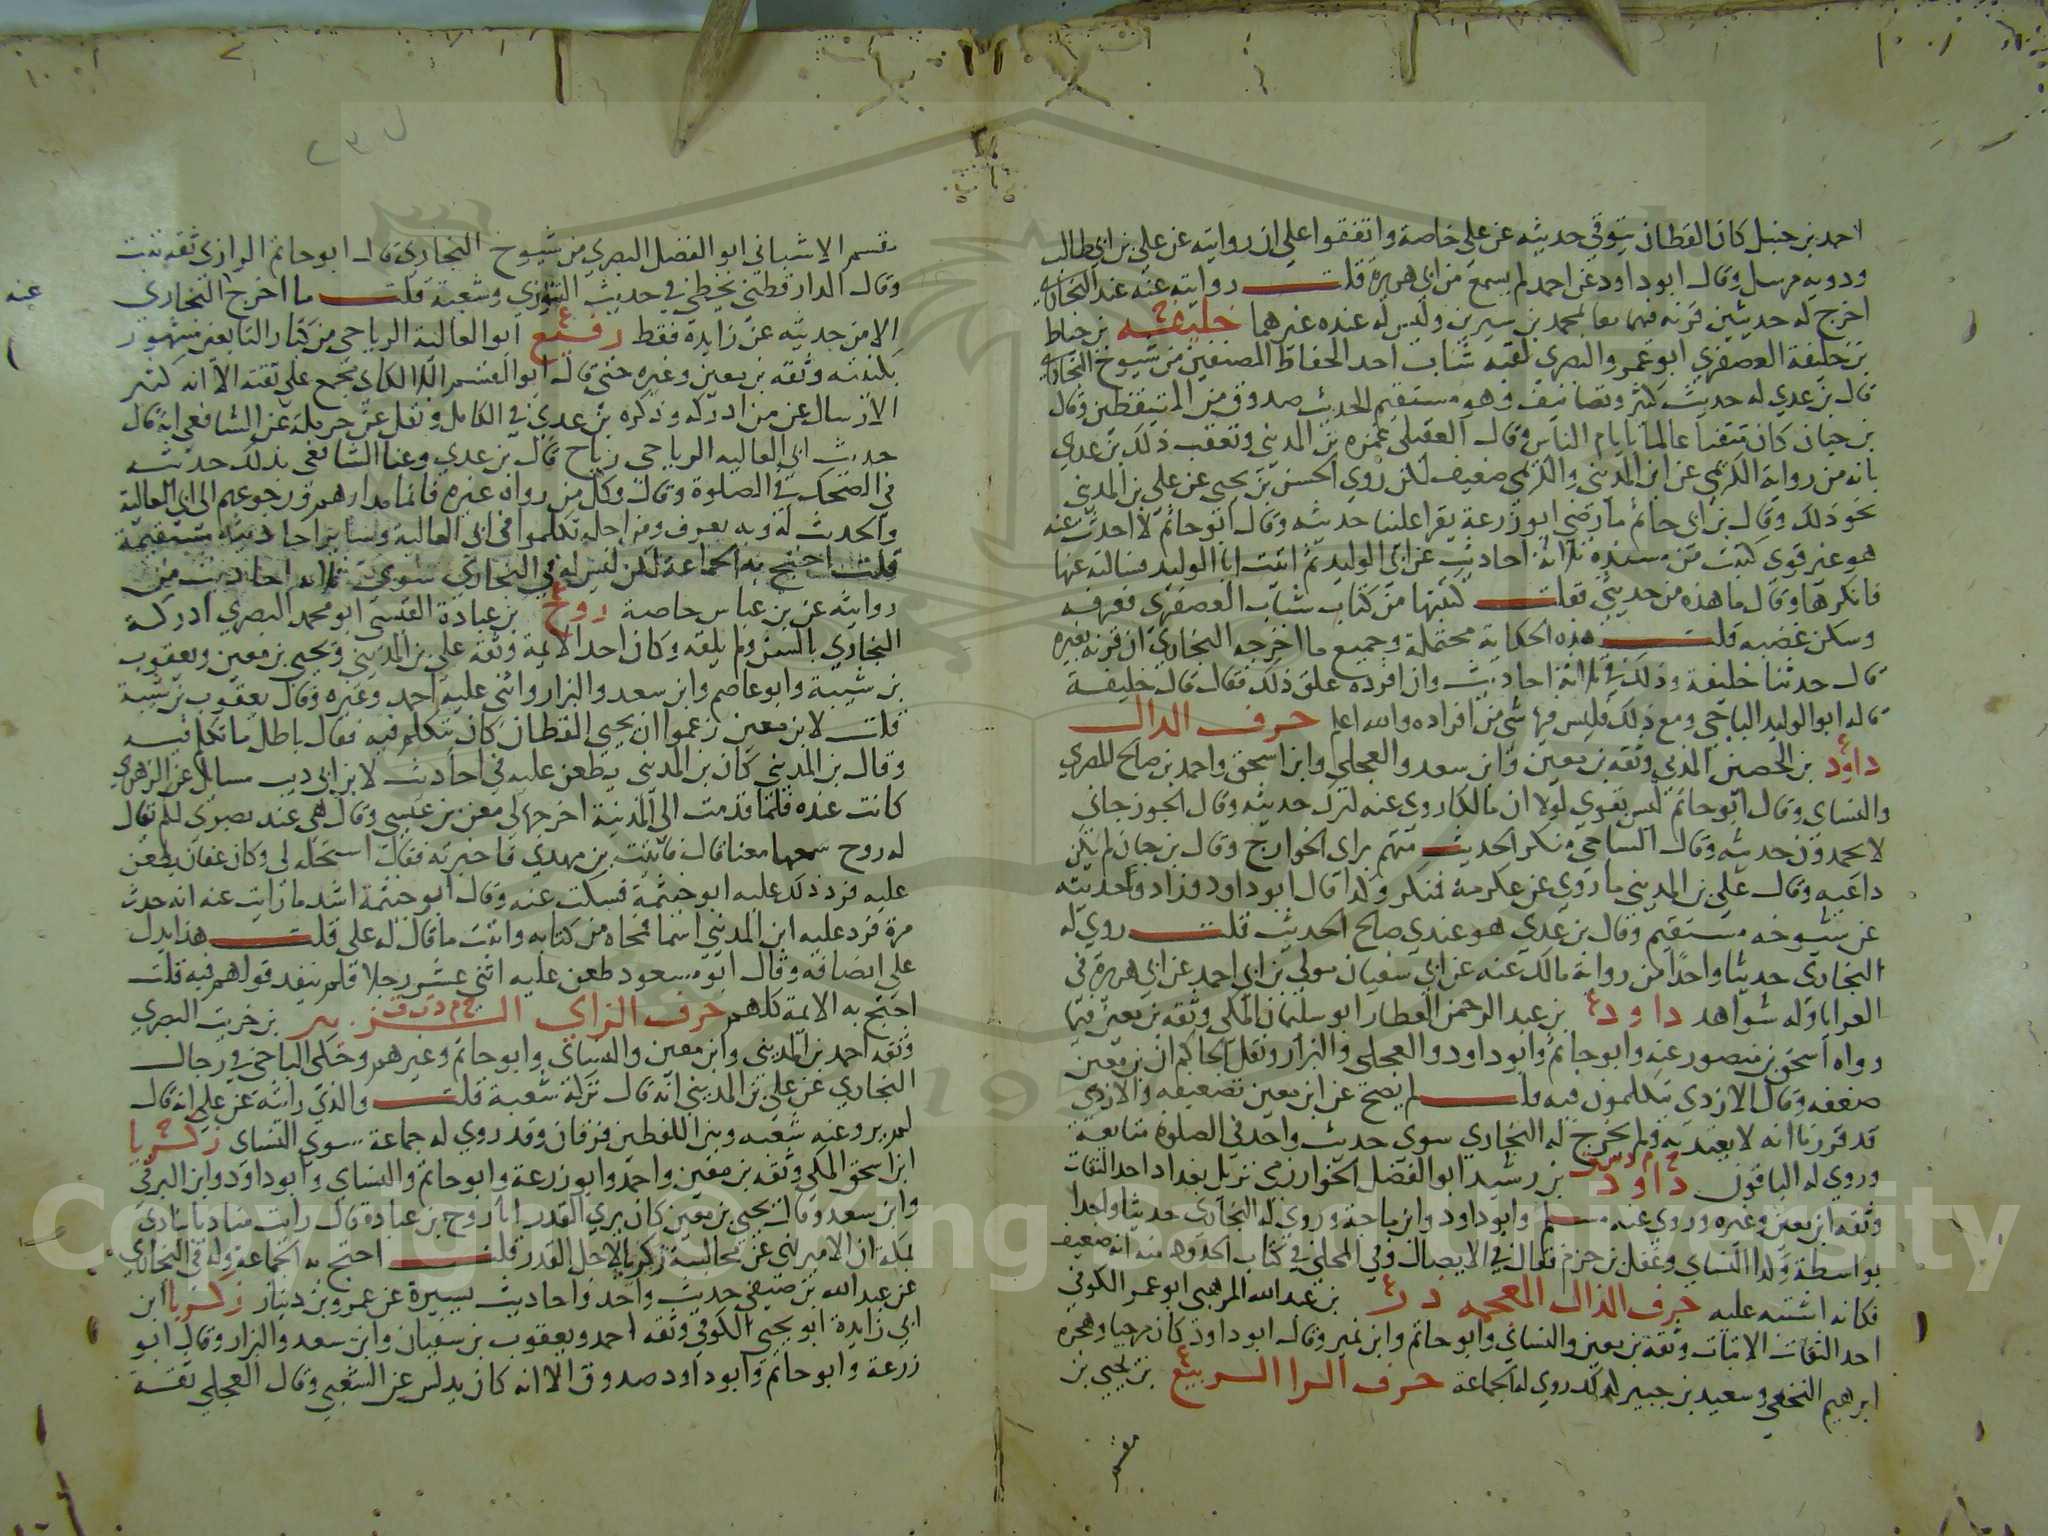 احمد بن حنبل كان القطان يتوقي حديثه عن علي خاصة واتفقوا علي ان روايته عن علي بن ابي طالب
ودويه مرسل وقال ابو داود عن احمد لم يسمع من ابي هريرة قلت روايته عنه عند البخاري
اخرج له حديثين قرنه فيهما معا بمحمد بن سيرين وليس له عنده غيرهما خليفه بن خياط
بن خليفة العصفري ابو عمرو البصري لقبه شباب احد الحفاظ المصنفين من شيوخ البخاري
قال بن عدي له حديث كثير وتصانيف وهو مستقيم الحديث صدوق من المتيقظين وقال
بن حبان كان متقنا عالما بايام الناس وقال العقيلي غمزه بن المديني وتعقب ذلك بن عدي
بانه من رواية الكديمي عن ابن المديني والكديمي ضعيف لكن روي الحسن بن يحيي عن علي بن المديني
نحو ذلك وقال بن ابي حاتم ما رضي ابو زرعة يقرا علينا حديثه وقال ابو حاتم لا احدث عنه
هو غير قوي كتبت من مسنده ثلاثة احاديث عن ابي الوليد ثم اتيت ابا الوليد فسالته عنها
فانكرها وقال ما هذه من حديثي فقلت كتبتها من كتاب شباب العصفري فعرفه
وسكن غضبه قلت هذه الحكاية محتملة وجميع ما اخرجه البخاري ان قرنه بغيره
قال حدثنا خليفة وذلك في ثلاثة احاديث وان افرده علق ذلك فقال قال خليفة
قاله ابو الوليد الباجي ومع ذلك فليس فيها شي من افراده والله اعلم حرف الدال
داود بن الحصين المدني وثقه بن معين وابن سعد والعجلي وابن اسحق واحمد بن صالح المصري
والنساي وقال ابو حاتم ليس بقوي لولا ان مالكا روي عنه لترك حديثه وقال الجوزجاني
لا يحمدون حديثه وقال الساجي منكر الحديث متهم براي الخوارج وقال بن حبان لم يكن
داعيه وقال علي بن المديني ما روي عن عكرمة فمنكر وكذا قال ابو داود وزاد وحديثه
عن شيوخه مستقيم وقال بن عدي هو عندي صالح الحديث قلت روي له
البخاري حديثا واحدا من رواية مالك عنه عن ابي سفيان مولي بن ابي احمد عن ابي هريرة في
العرايا وله شواهد داود بن عبد الرحمن العطار ابو سليمان المكي وثقه بن معين فيما
رواه اسحق بن منصور عنه وابو حاتم وابو داود والعجلي والبزار ونقل الحاكم ان بن معين
ضعفه وقال الازدي يتكلمون فيه قلت لم يصح عن ابن معين تضعيفه والازدي
قد قررنا انه لا يعتد به ولم يخرج له البخاري سوي حديث واحد في الصلوة متابعة
وروي له الباقون داود بن رشيد ابو الفضل الخوارزمي نزيل بغداد احد الثقات
وثقه ابن معين وغيره وروي عنه مسلم وابو داود وابن ماجة وروي له البخاري حديثا واحدا
بواسطة وكذا النساي وغفل بن حزم فقال في الايصال وفي المحلي في كتاب الحدود منه انه ضعيف
فكانه اشتبه عليه حرف الذال المعجمه ذر بن عبد الله المرهبي ابو عمر الكوفي
احد الثقات الاثبات وثقه بن معين والنساي وابو حاتم وابن نمير وقال ابو داود كان مرجيا وهجره
ابرهيم النخعي وسعيد بن جبير لذلك روي له الجماعة حرف الرا الربيع بن يحيي بن
مقسم
مقسم الاشناني ابو الفضل البصري من شيوخ البخاري قال ابو حاتم الرازي ثقه ثبت
وقال الدارقطني يخطي في حديث الثوري وشعبة قلت ما اخرج البخاري
عنه
الا من حديثه عن زايده فقط رفيع ابو العالية الرياحي من كبار التابعين مشهور
بكنيته وثقه بن معين وغيره حتي قال ابو القسم اللالكاي مجمع علي ثقته الا انه كثير
الارسال عن من ادركه وذكره بن عدي في الكامل ونقل عن حرملة عن الشافعي انه قال
حديث ابي العاليه الرياحي رياح قال بن عدي وعنا الشافعي بذلك حديثه
في الضحك في الصلوة وقال وكل من رواه غيره فانما مدارهم ورجوعهم الي ابي العالية
والحديث له وبه يعرف ومن اجله تكلموا في ابي العالية وساير احاديثه مستقيمة
قلت احتج به الجماعة لكن ليس له في البخاري سوي ثلاثه احاديث من
روايته عن بن عباس خاصة روح بن عبادة القيسي ابو محمد البصري ادركه
البخاري بالسن ولم يلقه وكان احد الايمة وثقه علي بن المديني ويحيي بن معين ويعقوب
بن شيبة وابو عاصم وابن سعد والبزار واثني عليه احمد وغيره وقال يعقوب بن شيبة
قلت لابن معين زعموا ان يحيي القطان كان يتكلم فيه فقال باطل ما تكلم فيه
وقال بن المديني كان بن المديني يطعن عليه في احاديث لابن ابي ذيب مسايل عن الزهري
كانت عنده فلما قدمت الي المدينة اخرجها لي معن بن عيسي وقال هي عند بصري لكم قال
له روح سمعها معنا قال فاتيت بن مهدي فاخبرته فقال استحله لي وكان عفان يطعن
عليه فرد ذلك عليه ابو خيثمة فسكت عنه وقال ابو خيثمة اشد ما رايت عنه انه حدث
مرة فرد عليه ابن المديني اسما فمحاه من كتابه واثبت ما قال له علي قلت هذا يدل
علي انصافه وقال ابو مسعود طعن عليه اثني عشر رجلا فلم ينفد قولهم فيه قلت
احتج به الايمة كلهم حرف الزاي الزبير بن خريت البصري
وثقه احمد بن المديني وابن معين والنساي وابو حاتم وغيرهم وحكي الباجي في رجال
البخاري عن علي بن المديني انه قال تركه شعبة قلت والذي رايته عن علي انه قال
لم يرو عنه شعبه وبين اللفظين فرقان وقد روي له جماعة سوي النساي زكريا
ابن اسحق المكي وثقه بن معين واحمد وابو زرعة وابو حاتم والنساي وابو داود وابن البرقي
وابن سعد وقال يحيي بن معين كان يري القدر انا روح بن عبادة قال رايت مناديا ينادي
بمكة ان الامير نهي عن مجالسة زكريا لاجل القدر قلت احتج به الجماعة وله في البخاري
عن عبد الله بن صيفي حديث واحد واحاديث يسيرة عن عمرو بن دينار زكريا ابن
ابي زايدة ابو يحيي الكوفي وثقه احمد ويعقوب بن سفيان وابن سعد والبزار وقال ابو
زرعة وابو حاتم وابو داود صدوق الا انه كان يدلس عن الشعبي وقال العجلي ثقة
Copyright © King Saud University